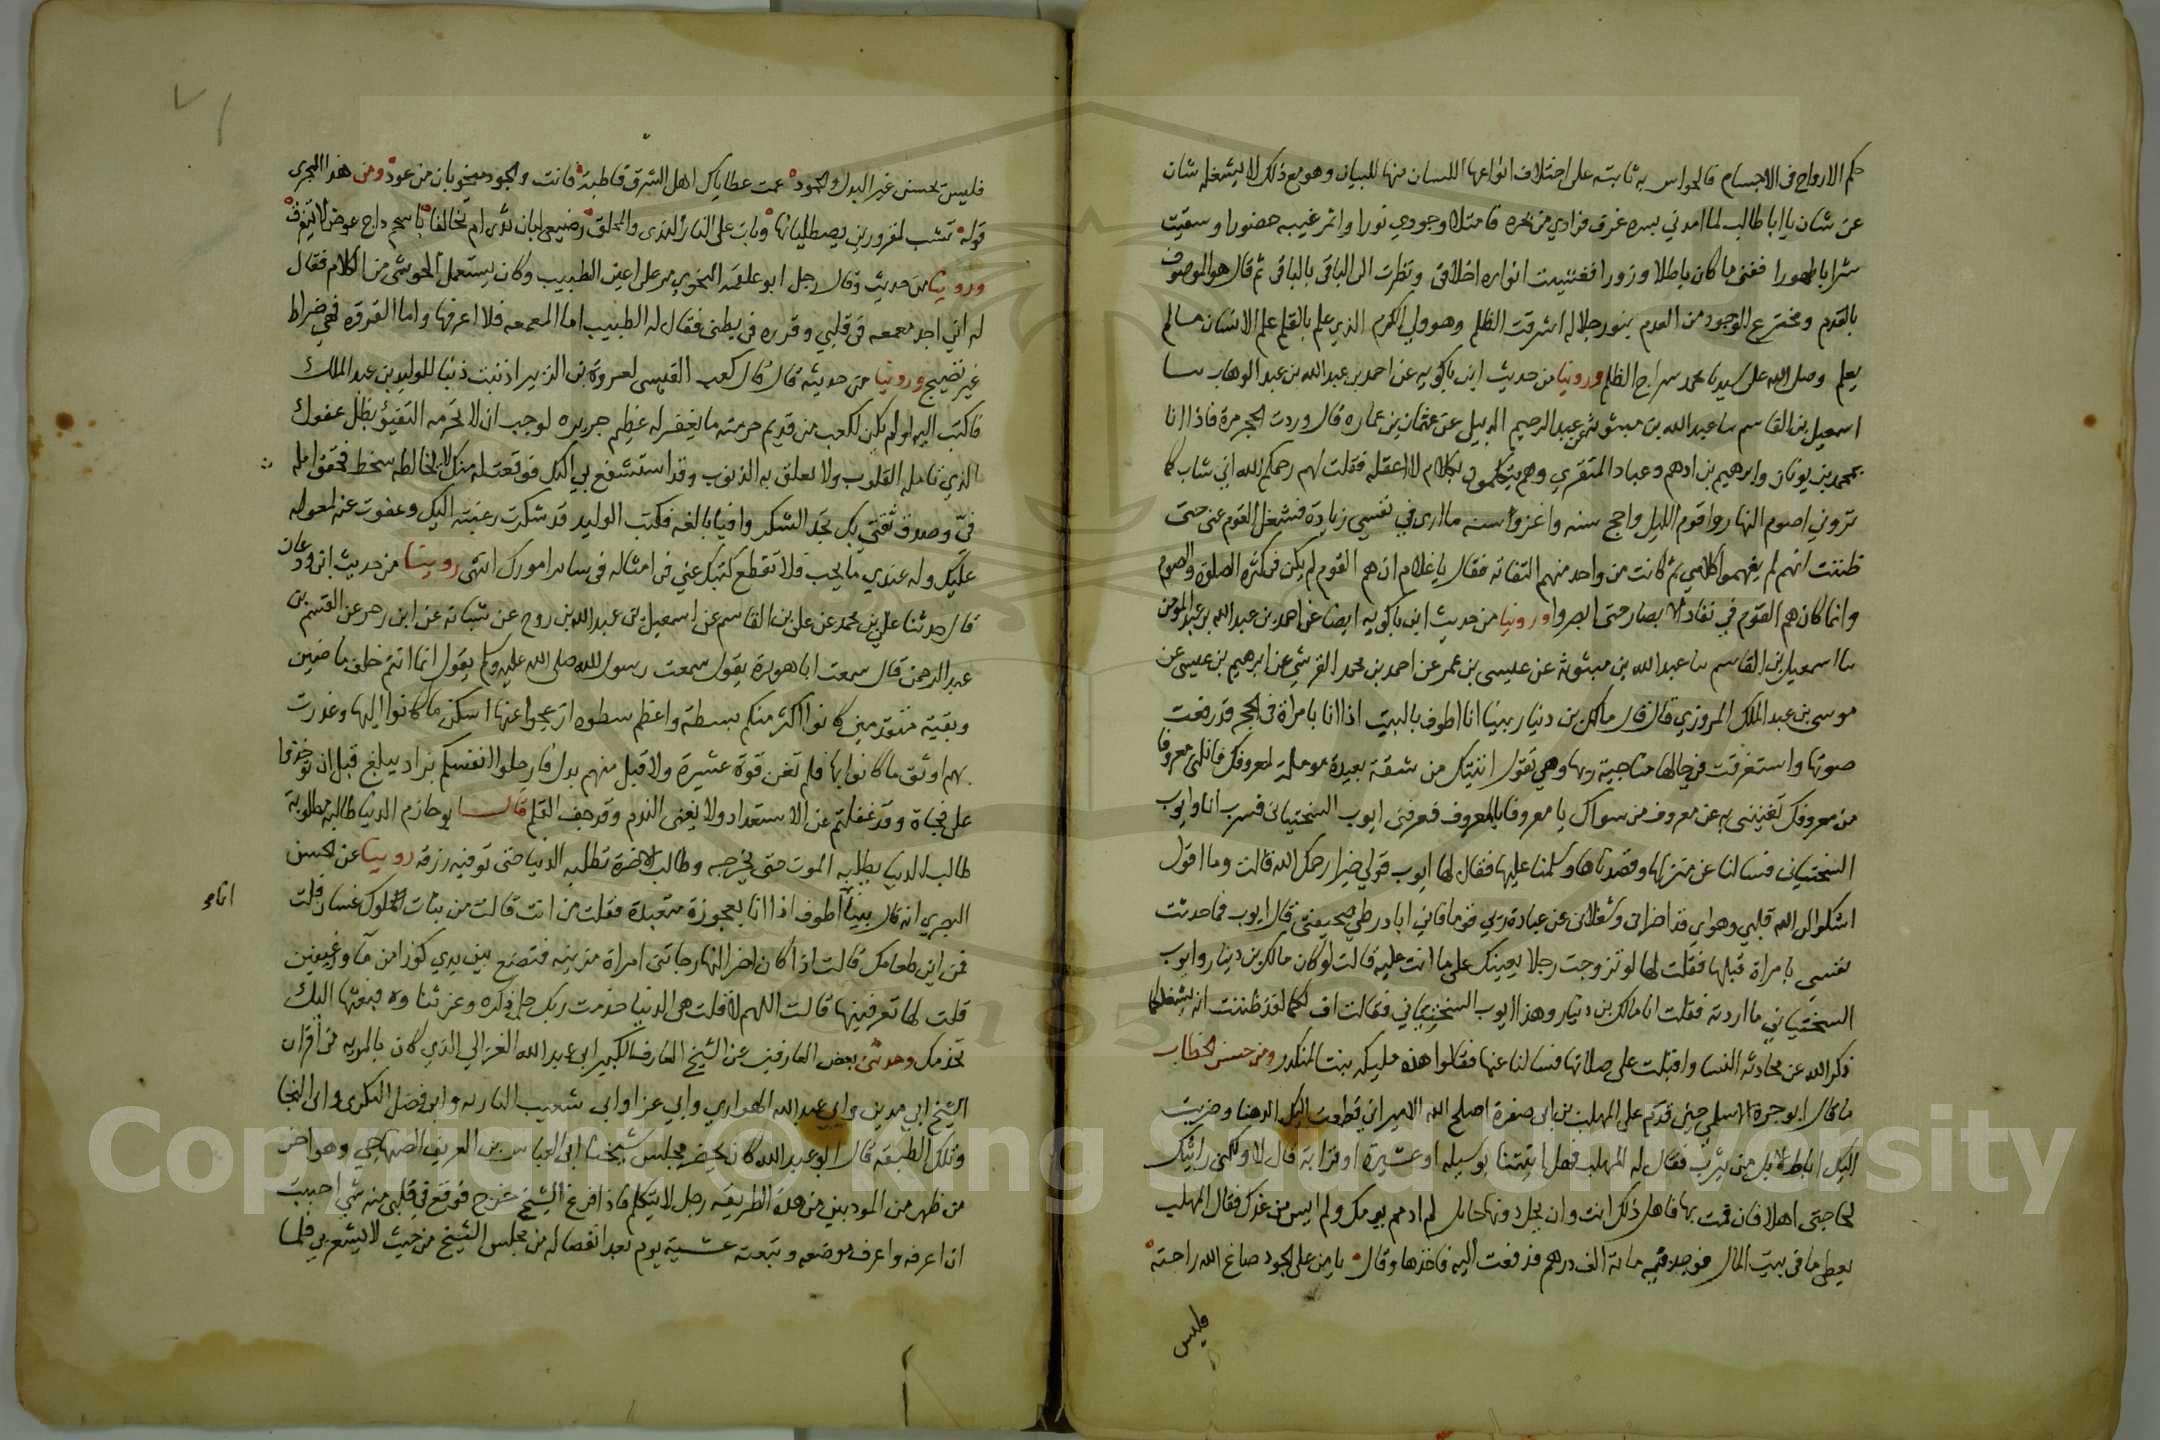 حكم الارواح في الاجسام فالحواس به ثابتة على اختلاف انواعها اللسان منها للبيان وهو مع ذلك لا يشغله شان
عن شان يا ابا طالب لما امدني بسره غرف فؤادي من بحره فامتلا وجودي نورا واثمر غيبه حضورا وسقيت
شرابا طهورا ففنى ما كان باطلا وزورا فغشيت انواره اخلاقي ونظرت الى الباقي بالباقي ثم قال هو الموصوف
بالقدم ومخترع الوجود من العدم بنور جلاله اشرقت الظلم وهو ولي الكرم الذي علم بالقلم علم الانسان ما لم
يعلم وصلى الله على سيدنا محمد سراج الظلم وروينا من حديث ابن باكويه عن احمد بن عبد الله بن عبد الوهاب سا
اسمعيل بن القاسم سا عبد الله بن مبشو ثني عبد الرحيم الدبيلي عن عثمان بن عماره قال وردت الحجر مرة فاذا انا
بمحمد بن يونان وابرهيم بن ادهم وعباد المنقري وهم يتكلمون بكلام لا اعقله فقلت لهم رحمكم الله اني شاب كما
تروني اصوم النهار واقوم الليل واحج سنه واغزوا سنه ما ارى في نفسي زيادة فشغل القوم عني حتى
ظننت انهم لم يفهموا كلامي ثم كانت من واحد منهم التفاته فقال يا غلام ان هم القوم لم يكن في كثرة الصلوة والصوم
وانما كان هم القوم في نفاد الابصار حتى ابصروا وروينا من حديث ابن باكويه ايضا عن احمد بن عبد الله بن عبد المومن
سا اسمعيل بن القاسم سا عبد الله بن مبشو ثه عن عيسى بن عمر عن احمد بن محمد القرشي عن ابرهيم بن عيسى عن
موسى بن عبد الملك المروزي قال قال مالك بن دينار بينا انا اطوف بالبيت اذا انا بامراة في الحجر قد رفعت
صوتها واستغرقت في حالها مناجية ربها وهي تقول اتيتك من شقة بعيدة موملة لمعروفك فانلني معروفا
من معروفك تغنيني به عن معروف من سواك يا معروفا بالمعروف فعرفني ايوب السختياني فسرب انا وايوب
السختياني فسالنا عن منزلها وقصدناها وسلمنا عليها فقال لها ايوب قولي خيرا رحمك الله قالت وما اقول
اشكوا الى الله قلبي وهواي فقد اضراني وشغلاني عن عبادة ربي قوما فاني ابادر طي صحيفتي قال ايوب فما حدثت
نفسي بامراة قبلها فقلت لها لو تزوجت رجلا يعينك على ما انت عليه قالت لو كان مالك بن دينار وايوب
السختياني ما اردته فقلت انا مالك بن دينار وهذا ايوب السختياني فقالت اف لكما لقد ظننت انه يشغلكما
ذكر الله عن محادثه النسا واقبلت على صلاتها فسالنا عنها فقالوا هذه مليكه بنت المنكدر ومن حسن الخطاب
ما قال ابو حمزة الاسلمي حين قدم على المهلب بن ابي صفرة اصلح الله الامير اني قطعت اليك الدهنا وضربت
اليك اباط الابل من يثرب فقال له المهلب فهل اتيتنا بوسيله او عشيرة او قرابة قال لا ولكني رايتك
لحاجتي اهلا فان قمت بها فاهل ذلك انت وان يحل دونها حايل لم اذمم يومك ولم اياس من غدك فقال المهلب
يعطى ما في بيت المال فوجد فيه مائة الف درهم فدفعت اليه فاخذها وقال يا من على الجود صاغ الله راحته
فليس
فليس يحسن غير البذل والجود عمت عطاياك اهل الشرق قاطبة فانت والجود منحوتان من عود ومن هذا المجرى
قوله تشب لمقرورين يصطليانها وبات على النار الندى والمحلق رضيعي لبان ثدي ام تحالفا باسحم داج عوض لا نتفرق
وروينا من حديث وقال رجل ابو علقمه النحوي مر على اعين الطبيب وكان يستعمل الحوشي من الكلام فقال
له اني اجد معمعه في قلبي وقرقره في بطني فقال له الطبيب اما المعمعه فلا اعرفها واما القرقره فهي ضراط
غير نضيج وروينا من حديثه قال قال كعب القيسي لعروة بن الزبير اذنبت ذنبا للوليد بن عبد الملك
فاكتب اليه لو لم يكن لكعب من قديم حرمته ما يغفر له عظيم جريره لوجب ان لا تحرمه التفيؤ بظل عفوك
الذي تامله القلوب ولا تعلق به الذنوب وقد استشفع بي اليك فوثقت له منك لا يخالطه سخط فحقق امله
في وصدق ثقتي بك تجد الشكر وافيا بالغه فكتب الوليد قد شكرت رغبته اليك وعفوت عنه لمعوله
عليك وله عندي ما يحب فلا تقطع كتبك عني في امثاله في ساير امورك انتهى روينا من حديث ابن ودعان
قال حدثنا علي بن محمد عن علي بن القاسم عن اسمعيل بن عبد الله بن روح عن شبابة عن ابن زحر عن القسم بن
عبد الرحمن قال سمعت ابا هريرة يقول سمعت رسول الله صلى الله عليه وسلم يقول انما انتم خلف ماضين
وبقية متقدمين كانوا اكثر منكم بسطة واعظم سطوه ازعجوا عنها اسكن ما كانوا اليها وغدرت
بهم اوثق ما كانوا بها فلم تغن قوة عشيرة ولا قبل منهم بدل فارحلوا انفسكم بزاد يبلغ قبل ان توخذوا
على فجاة وقد غفلتم عن الاستعداد ولا يغني الندم وقد جف القلم قال ابو حازم الدنيا طالبة مطلوبة
طالب الدنيا يطلبه الموت حتى يخرجه وطالب الاخرة تطلبه الدنيا حتى توفيه رزقه روينا عن الحسن
البصري انه قال بينا اطوف اذا انا بعجوزة متعبدة فقلت من انت قالت من بنات الملوك غسان قلت
انا مر
فمن اين طعامك قالت اذا كان اخر النهار جاتني امراة متزينه فتضع بين يدي كوزا من ماء ورغيفين
قلت لها تعرفينها قالت اللهم لا قلت هي الدنيا خدمت ربك جل ذكره وعز ثناوه فبعثها اليك
تخدمك وحدثني بعض العارفين عن الشيخ العارف الكبير ابي عبد الله الغزالي الذي كان بالمريه من اقران
الشيخ ابي مدين وابي عبد الله الهواري وابي عزا وابي شعيب الساريه وابي فضل البكري وابي النجا
وتلك الطبقه قال ابو عبد الله كان يحضر مجلس شيخنا ابي العباس بن العريف الصنهاجي وهو اخر
من ظهر من المودبين من هذه الطريقه رجل لا يتكلم فاذا فرغ الشيخ خرج فوقع في قلبي منه شي احببت
ان اعرفه واعرف موضعه وتبعته عشية يوم بعد انفصاله من مجلس الشيخ من حيث لا يشعر بي فلما
Copyright © King Saud University